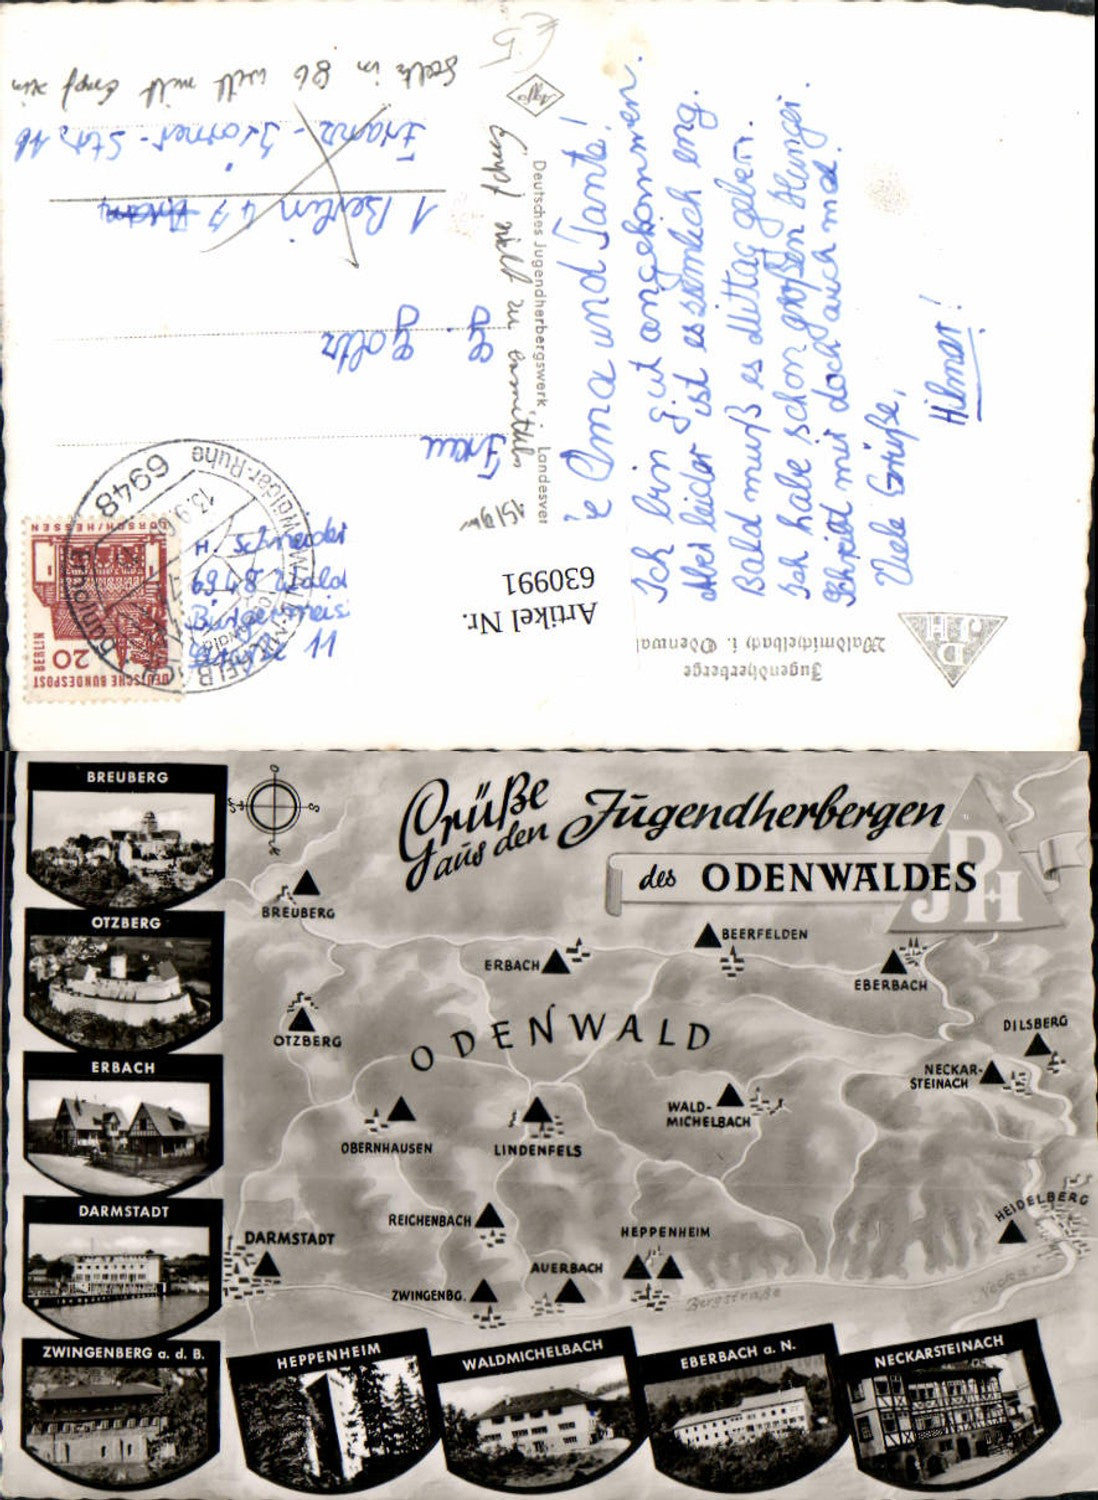 Jugendherberge
Waldmichelbach i. Odenwal
DJH
Oma und Tante!
Ich bin gut angekommen.
Aber leider ist es ziemlich eng.
Bald muß es Mittag geben.
Ich habe schon großen Hunger.
Schreibt mir doch auch mal.
Viele Grüße,
Hilmar!
Artikel Nr.
630991
Deutsches Jugendherbergswerk, Landesver
Agfa
Empf nicht zu ermitteln
DEUTSCHE BUNDESPOST
BERLIN
20
LORSCH/HESSEN
6948
H. Schneider
6948 Wald
Bürgermeis
11
Frau
G. Goltz
1 Berlin 47
Franz-Körner-Str.
€ 5
Grüße
aus den Jugendherbergen
des ODENWALDES
DJH
BREUBERG
OTZBERG
ERBACH
DARMSTADT
ZWINGENBERG a. d. B.
HEPPENHEIM
WALDMICHELBACH
EBERBACH a. N.
NECKARSTEINACH
BREUBERG
ERBACH
BEERFELDEN
EBERBACH
OTZBERG
ODENWALD
DILSBERG
NECKAR-
STEINACH
OBERNHAUSEN
LINDENFELS
WALD-
MICHELBACH
REICHENBACH
HEIDELBERG
DARMSTADT
HEPPENHEIM
AUERBACH
ZWINGENBG.
Bergstraße
Neckar